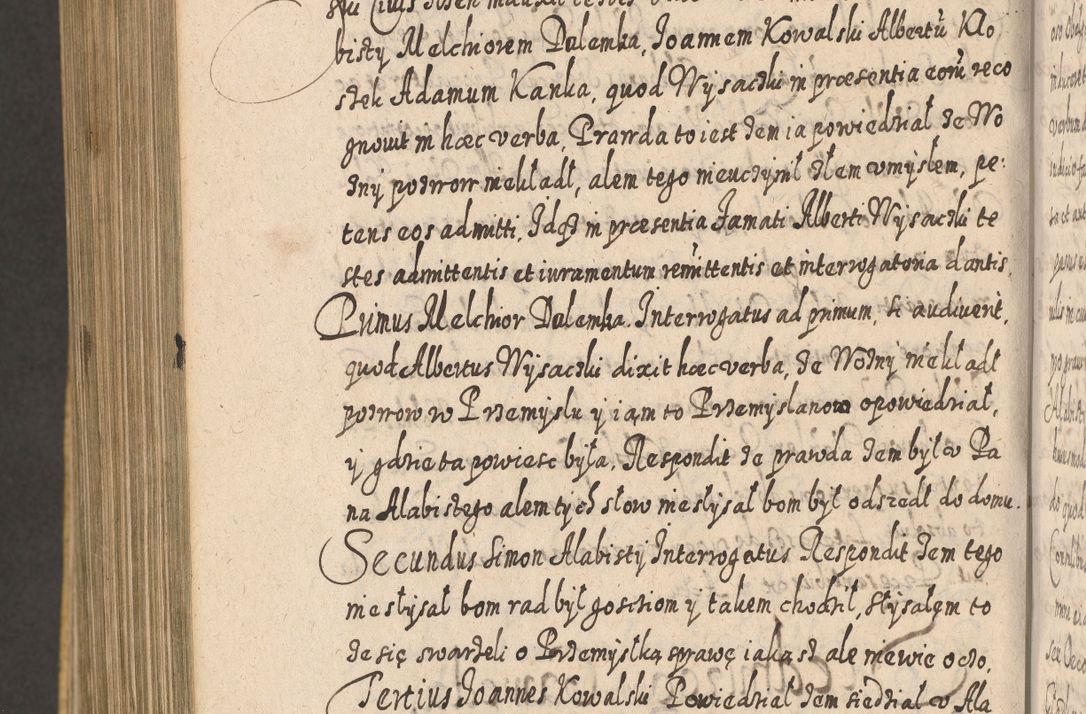 bisty Melchiorem Dalemka, Joannem Kowalski Albertũ Klo
stek Adamum Kanka, quod Wysaczki in præsentia eorũ reco
gnovit in hæc verba, Prawda to iest żem ia powiedział że Wo
zny pozwow niekładł, alem tego nieuczynił złem vmysłem, pe:
tens eos admitti. Idqз in præsentia famati Alberti Wysaczki te
stes admittentis et iuramentum remittentis et interrogatoria dantis.
Primus Melchior Dalemka. Interrogatus ad primum, si audiverit,
quod Albertus Wysaczki dixit hæc verba, że Wozny niekładł
pozwow w Przemyslu y iam to Przemyslanow opowiedział,
y gdzie ta powiesc była. Respondit że prawda żem był v Pa
na Alabistego alem tych słow niesłysał bom był odszedł do domu.
Secundus Simon Alabisty Interrogatus Respondit żem tego
niesłysał bom rad był gosciom y takem chodził, słysałem to
że się swarzeli o Przemyslką sprawę iakąsz ale niewie oczo.
Tertius Joannes Kowalski Powiedział żem siedział v Ala